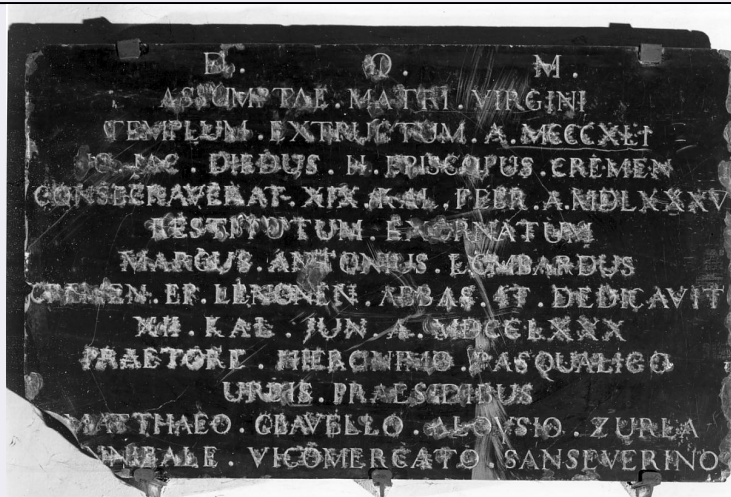 D. O. M.
ASSUMPTAE . MATRI . VIRGINI
TEMPLUM . EXTRUCTUM . A. MCCCXLI
JO. JAC . DIEDUS . II . EPISCOPUS . CREMEN
CONSECRAVERAT . XIX . KAL . FEBR . A. MDLXXXV
RESTITUTUM EXORNATUM
MARCUS . ANTONIUS . LOMBARDUS
CREMEN . EP . ABBAS . DEDICAVIT
KAL . JUN . A. MDCCLXXX
PRAETORE . HIERONIMO . PASQUALIGO
URBIS . PRAESIDIBUS
MATTHAEO . ALOYSIO . ZURLA
VICOMERCATO . SANSEVERINO